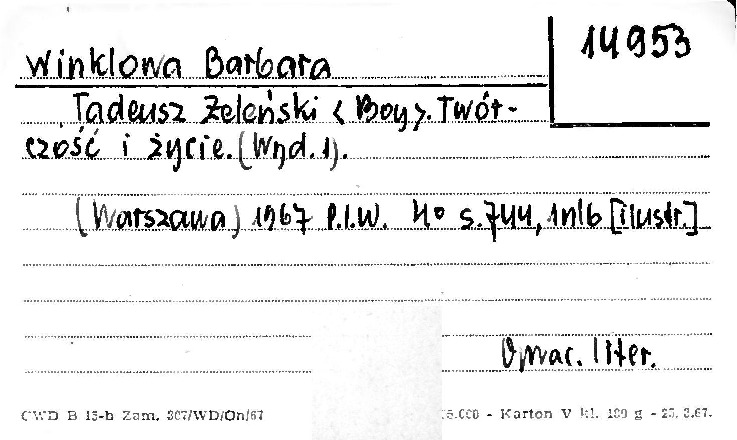 14953
Winklowa Barbara
Tadeusz Żeleński <Boy>. Twór-
czość i życie. (Wyd. 1).
(Warszawa) 1967 P.I.W. 4° s. 744, 1nlb [ilustr.]
Oprac. liter.
CWD B 15-h Zam. 307/WD/On/67 5.000 - Karton V kl. 180 g - 25. 3.67.